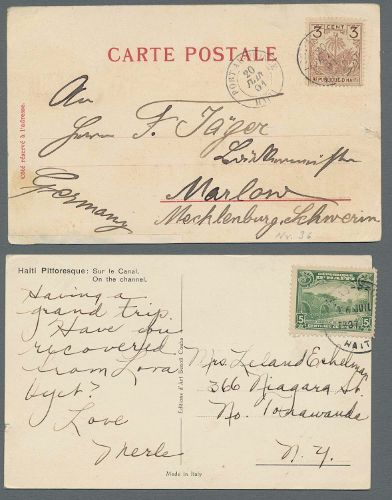 CARTE POSTALE
3 CENT 3
REPUBLIQUE D'HAITI
PORT-AU-
20
91
HAITI
Côté réservé à l'adresse.
An
Herrn F. Jäger
Marlow
Germany
Mecklenburg, Schwerin
Nr. 36
Haiti Pittoresque: Sur le Canal.
On the channel.
REPUBLIQUE
D'HAITI
5
HAITI
Having a
grand trip.
Have you
recovered
from Lora
yet?
Love
Merle
Editions d'Art
Mrs Leland Eshelman
366 Niagara St.
No. Tonawanda
N. Y.
Made in Italy